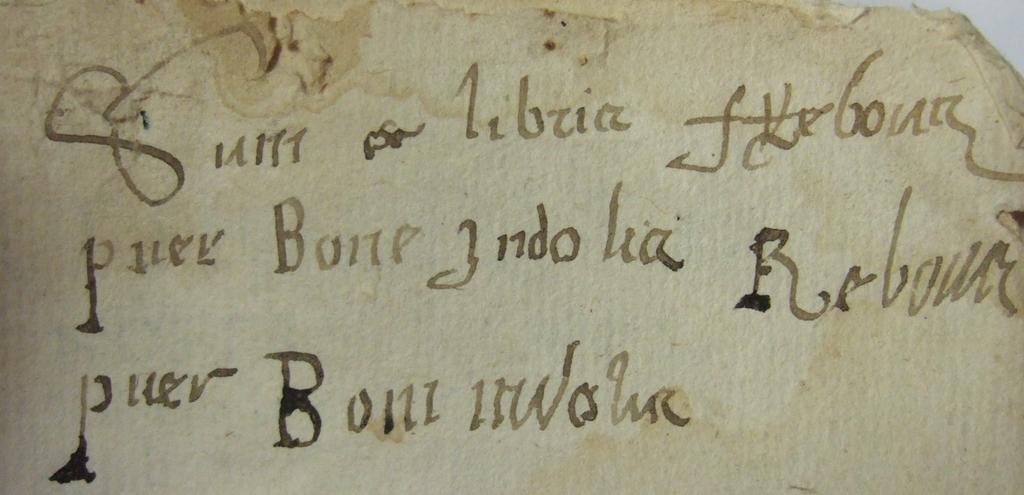 Sum ex libris f Rebours
puer Bone Indolis Rebours
puer Boni indolis